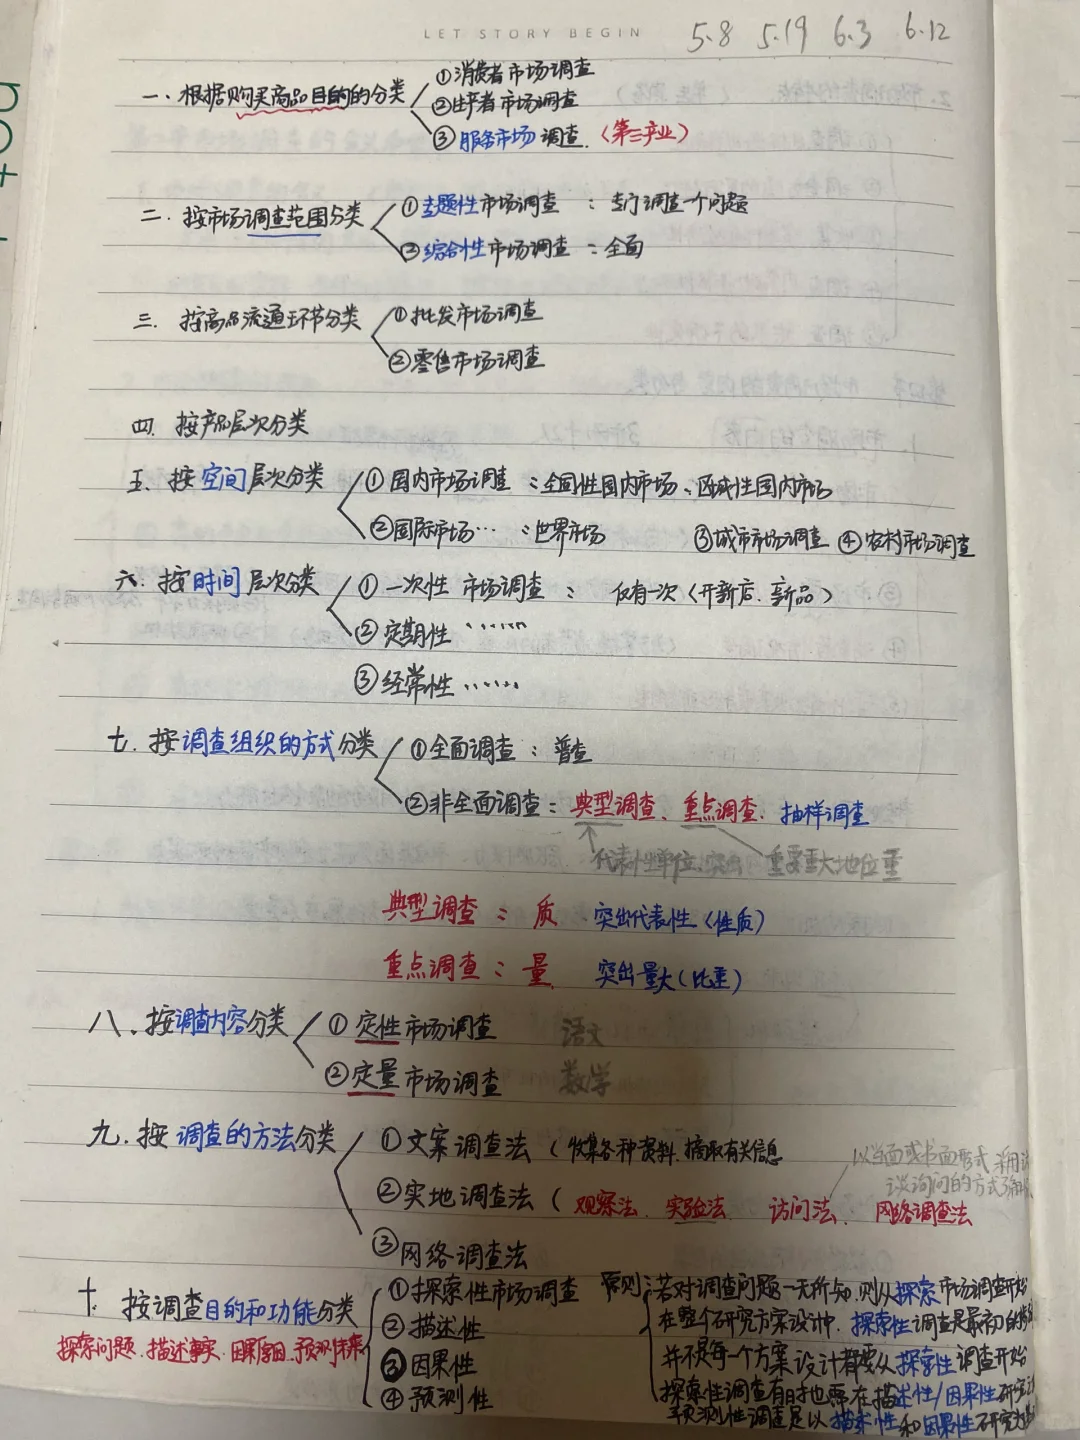 LET STORY BEGIN
5.8 5.19 6.3 6.12
一. 根据购买商品目的的分类
①消费者市场调查
②生产者市场调查
③服务市场调查.（第三产业）
二. 按市场调查范围分类
①专题性市场调查：专门调查一个问题
②综合性市场调查：全面
三. 按商品流通环节分类
①批发市场调查
②零售市场调查
四. 按产品层次分类
五. 按空间层次分类
①国内市场调查：全国性国内市场、区域性国内市场
②国际市场…：世界市场 ③城市市场调查 ④农村市场调查
六. 按时间层次分类
①一次性市场调查：仅有一次（开新店、新品）
②定期性……
③经常性……
七. 按调查组织的方式分类
①全面调查：普查
②非全面调查：典型调查、重点调查、抽样调查
代表性单位突出 重要重大地位重
典型调查：质 突出代表性（性质）
重点调查：量 突出量大（比重）
八. 按调查内容分类
①定性市场调查 语文
②定量市场调查 数学
九. 按调查的方法分类
①文案调查法（收集各种资料.摘取有关信息
以当面或书面形式采用
谈询问的方式了解
②实地调查法（观察法、实验法 访问法、网络调查法
③网络调查法
十. 按调查目的和功能分类
探索问题.描述事实.因果原因.预测未来
①探索性市场调查
②描述性
③因果性
④预测性
原则：若对调查问题一无所知,则从探索市场调查开始
在整个研究方案设计中.探索性调查是最初的
并不是每一个方案设计都要从探索性调查开始
探索性调查有时也要在描述性/因果性研究
预测性调查是以描述性和因果性研究